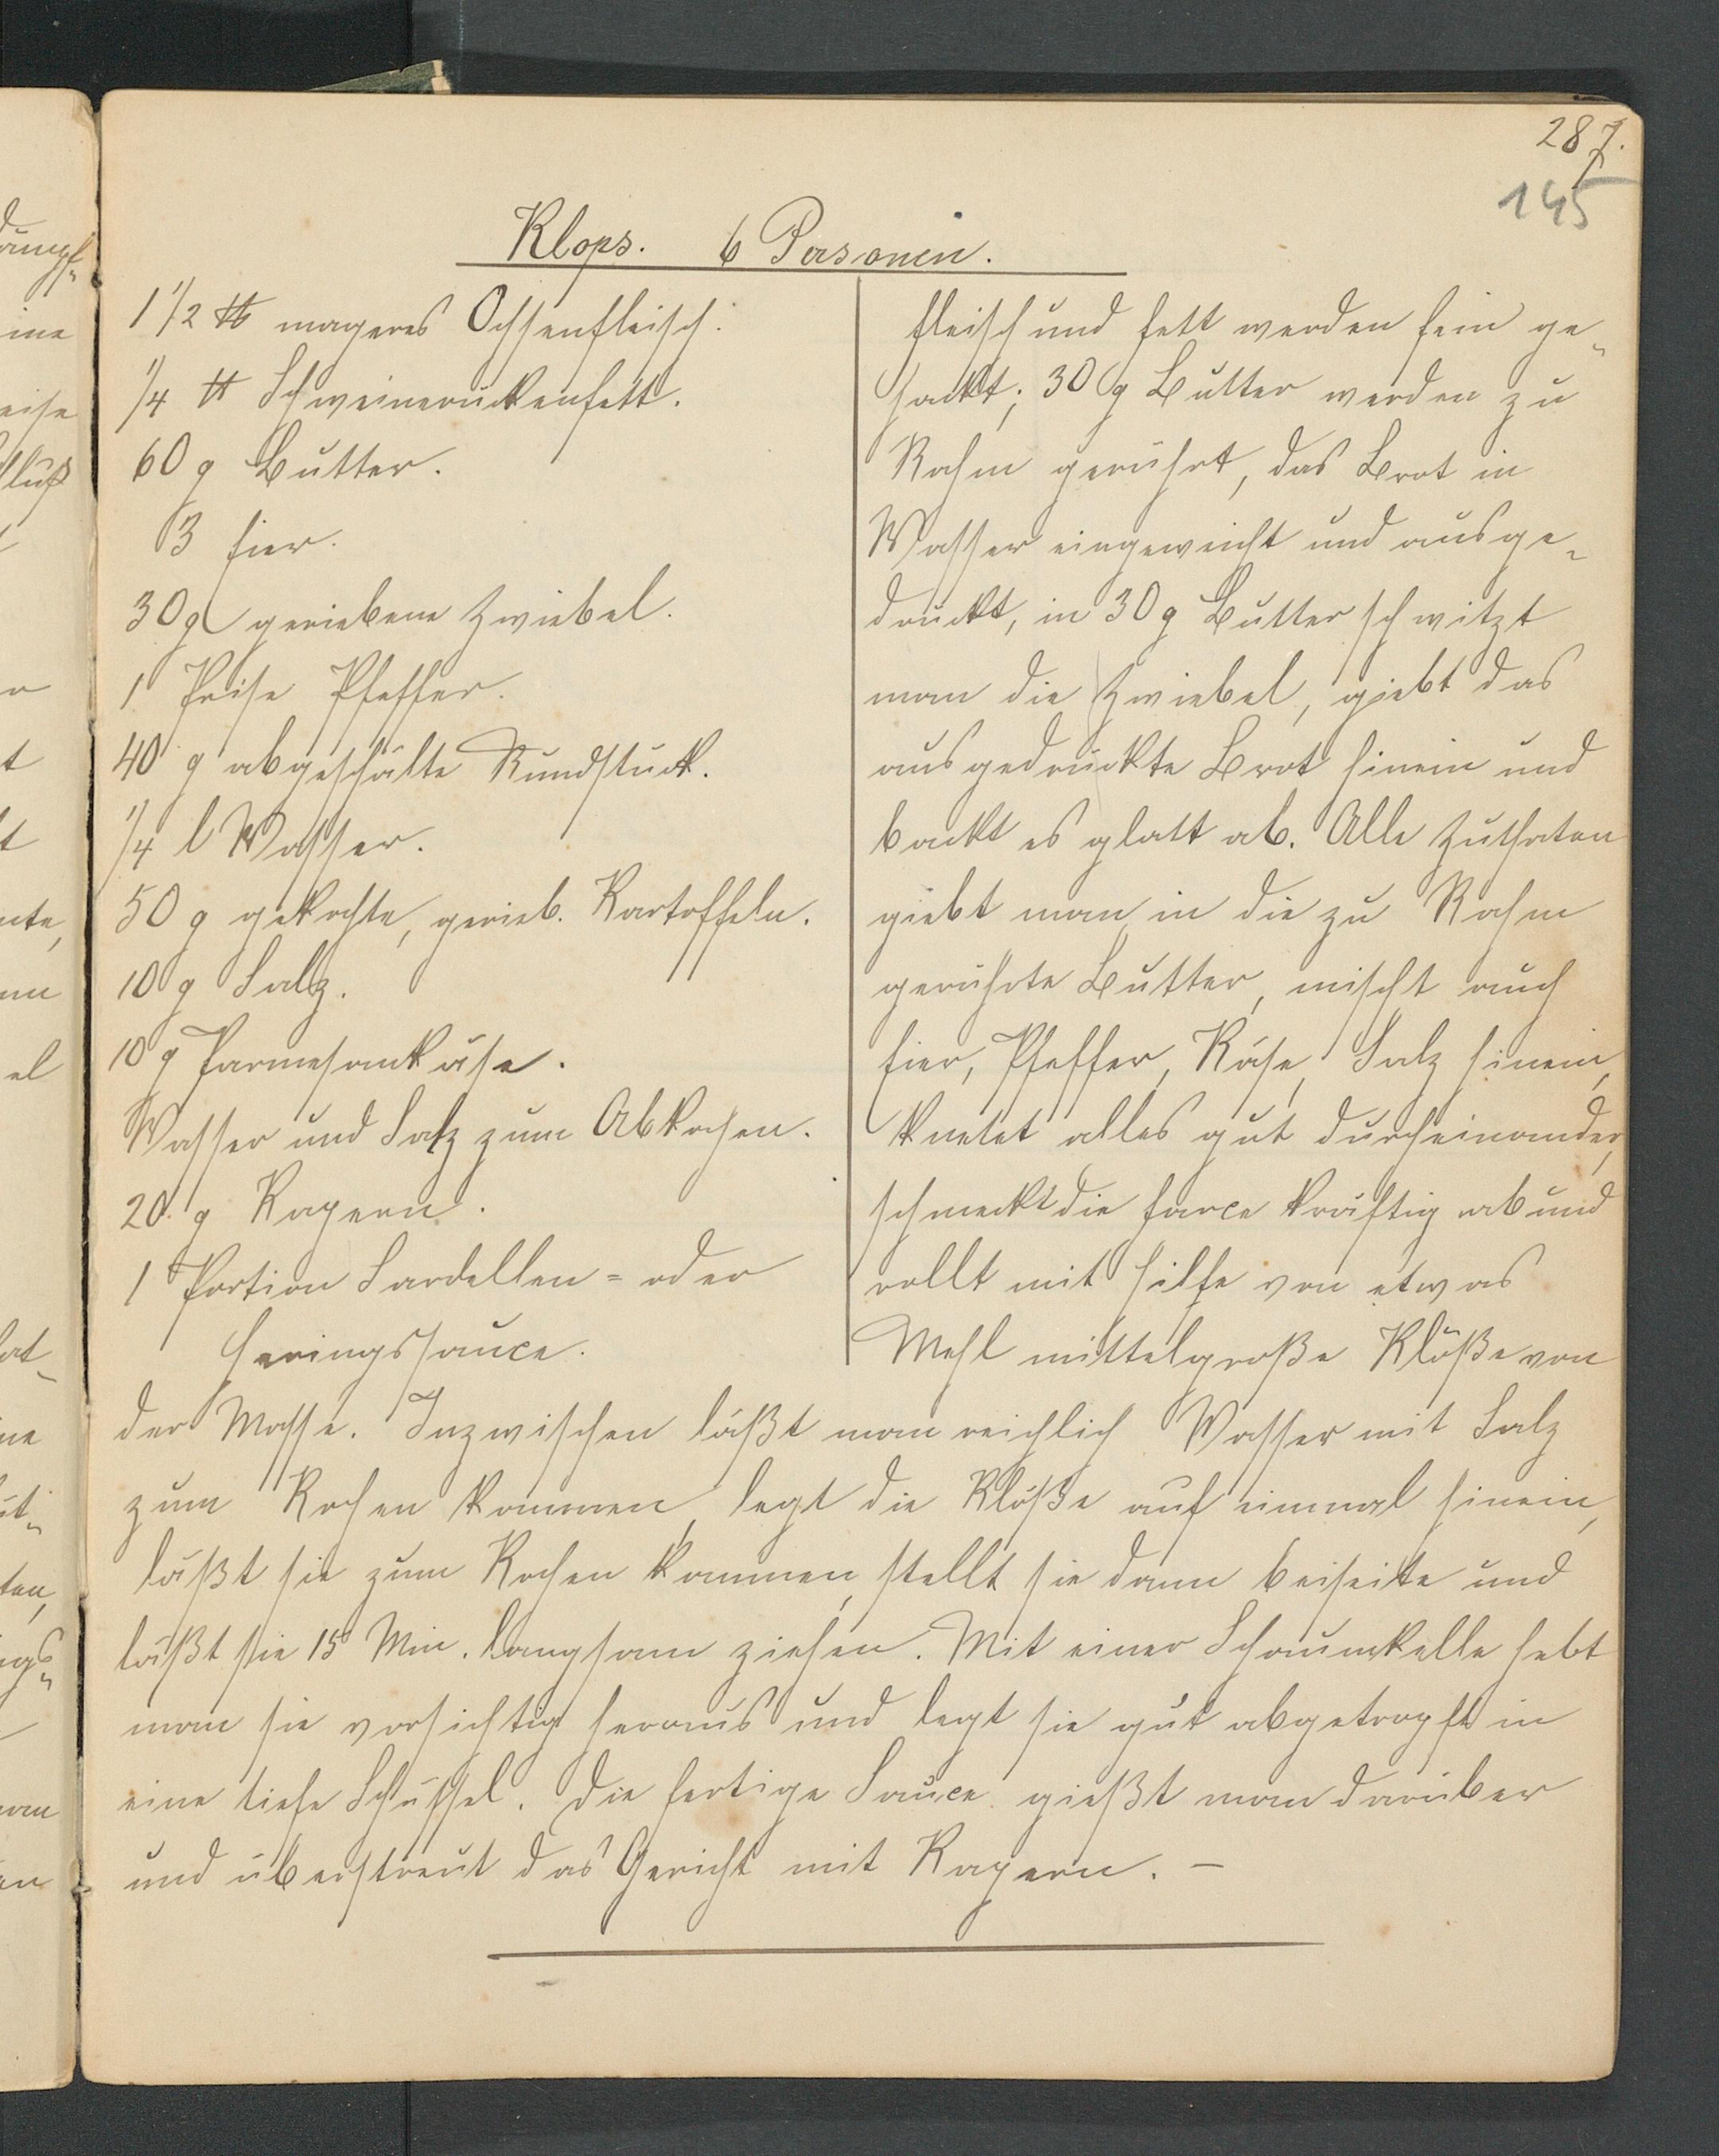 287.
145
Klops. 6 Personen.
1 1/2 ℔ mageres Ochsenfleisch.
1/4 ℔ Schweinerückenfett.
60 g Butter.
3 Eier.
30 g geriebene Zwiebel.
1 Prise Pfeffer.
40 g abgeschälte Rundstück.
1/4 l Wasser.
50 g gekochte, gerieb. Kartoffeln.
10 g Salz.
10 g Parmesankäse.
Wasser und Salz zum Abkochen.
20 g Kapern.
1 Portion Sardellen= oder
Heringssauce.
Fleisch und Fett werden fein ge-
hackt; 30 g Butter werden zu
Rahm gerührt, das Brot in
Wasser eingeweicht und ausge-
drückt, in 30 g Butter schwitzt
man die Zwiebel, giebt das
ausgedrückte Brot hinein und
backt es glatt ab. Alle Zuthaten
giebt man in die zu Rahm
gerührte Butter, mischt auch
Eier, Pfeffer, Käse, Salz hinein,
knetet alles gut durcheinander,
schmeckt die Farce kräftig ab und
rollt mit Hilfe von etwas
Mehl mittelgroße Klöße von
der Masse. Inzwischen läßt man reichlich Wasser mit Salz
zum Kochen kommen, legt die Klöße auf einmal hinein,
läßt sie zum Kochen kommen, stellt sie dann beiseite und
läßt sie 15 Min. langsam ziehen. Mit einer Schaumkelle hebt
man sie vorsichtig heraus und legt sie gut abgetropft in
eine tiefe Schüssel. Die fertige Sauce gießt man darüber
und überstreut das Gericht mit Kapern. –